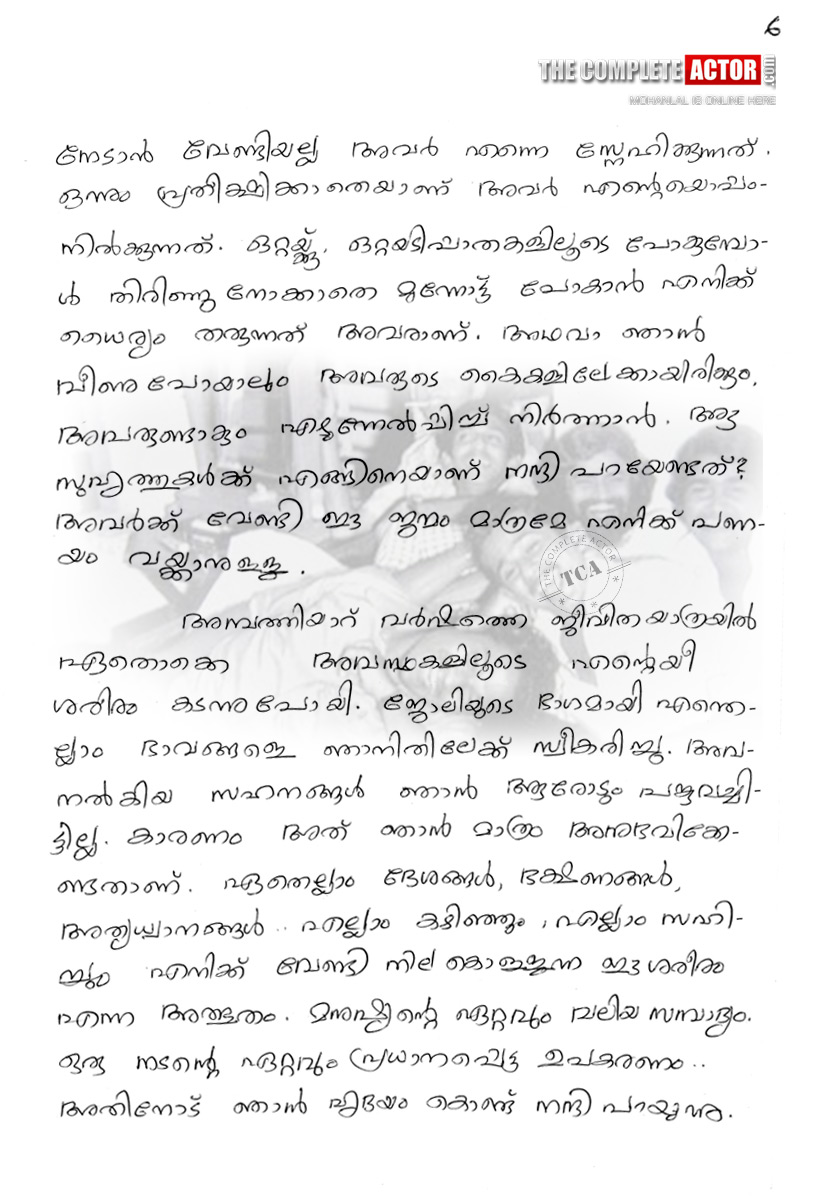 6
THE COMPLETE ACTOR .com
MOHANLAL IS ONLINE HERE
നേടാൻ വേണ്ടിയല്ല അവർ എന്നെ സ്നേഹിക്കുന്നത്.
ഒന്നും പ്രതീക്ഷിക്കാതെയാണ് അവർ എന്റെയൊപ്പം-
നിൽക്കുന്നത്. ഒറ്റയ്ക്ക്, ഒറ്റയടിപ്പാതകളിലൂടെ പോകുമ്പോ-
ൾ തിരിഞ്ഞു നോക്കാതെ മുന്നോട്ട് പോകാൻ എനിക്ക്
ധൈര്യം തരുന്നത് അവരാണ്. അഥവാ ഞാൻ
വീണു പോയാലും അവരുടെ കൈകളിലേക്കായിരിക്കും,
അവരുണ്ടാകും എഴുന്നേൽപ്പിച്ച് നിർത്താൻ. ആ
സുഹൃത്തുകൾക്ക് എങ്ങിനെയാണ് നന്ദി പറയേണ്ടത്?
അവർക്ക് വേണ്ടി ഈ ജന്മം മാത്രമേ എനിക്ക് പണ-
യം വയ്ക്കാനുള്ളൂ.
THE COMPLETE ACTOR
TCA
അമ്പത്തിയാറ് വർഷത്തെ ജീവിതയാത്രയിൽ
ഏതൊക്കെ അവസ്ഥകളിലൂടെ എന്റെയീ
ശരീരം കടന്നുപോയി. ജോലിയുടെ ഭാഗമായി എന്തെ-
ല്ലാം ഭാവങ്ങളെ ഞാനിതിലേക്ക് സ്വീകരിച്ചു. അവ-
നൽകിയ സഹനങ്ങൾ ഞാൻ ആരോടും പങ്കുവച്ചി-
ട്ടില്ല. കാരണം അത് ഞാൻ മാത്രം അനുഭവിക്കേ-
ണ്ടതാണ്. ഏതെല്ലാം ദേശങ്ങൾ, ഭക്ഷണങ്ങൾ,
അത്യധ്വാനങ്ങൾ.. എല്ലാം കഴിഞ്ഞും, എല്ലാം സഹി-
ച്ചും എനിക്ക് വേണ്ടി നില കൊള്ളുന്ന ഈ ശരീരം
എന്ന അത്ഭുതം. മനുഷ്യന്റെ ഏറ്റവും വലിയ സമ്പാദ്യം.
ഒരു നടന്റെ ഏറ്റവും പ്രധാനപ്പെട്ട ഉപകരണം..
അതിനോട് ഞാൻ ഹൃദയം കൊണ്ട് നന്ദി പറയുന്നു.